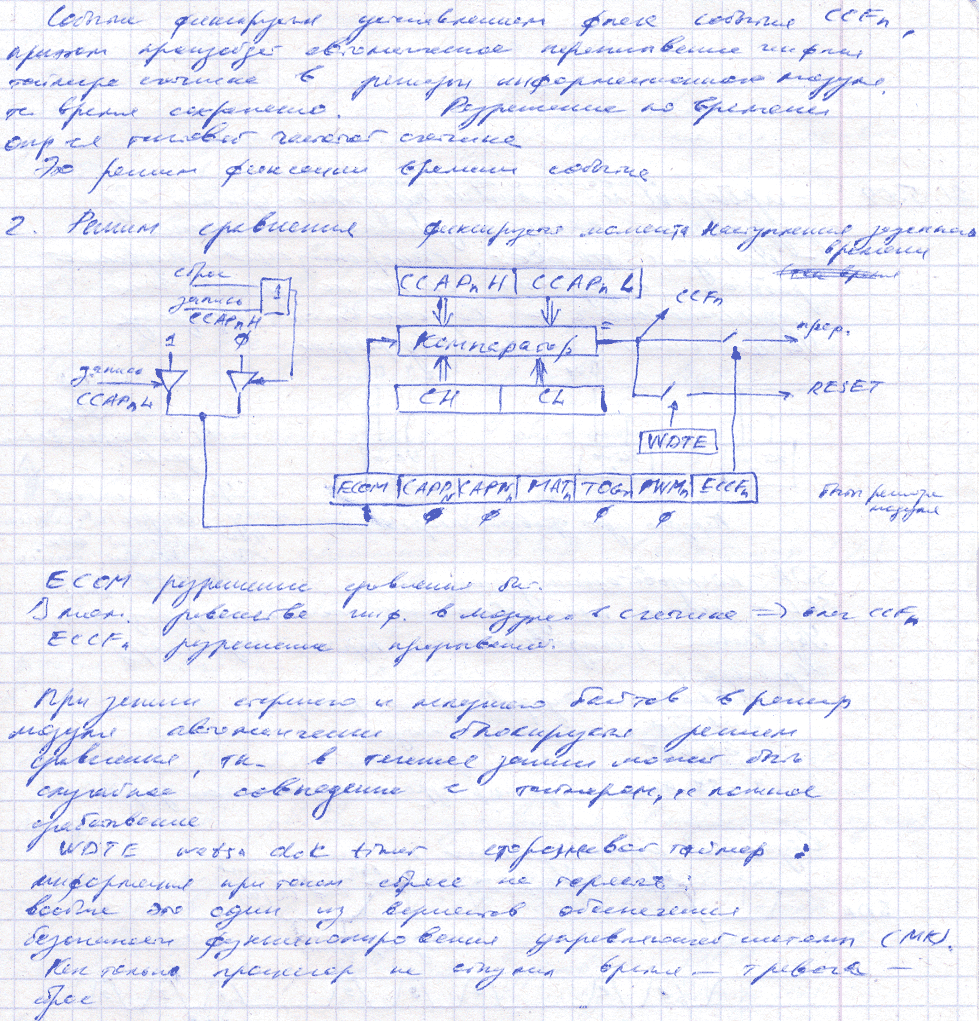 Событие фиксируется установлением флага события CCFn,
причем произойдет автоматическое переписывание информ
таймера счетчика в регистры информационного модуля,
те время сохранено. Разрешение по времени
опр-ся тактовой частотой счетчика
Это режим фиксации времени события
2. Режим сравнения фиксирует момента наступления заданного
времени
сброс
запись
CCAPnH
1
1 0
запись
CCAPnL
CCAPnH CCAPnL
CCFn
Компаратор
=
прер.
CH CL
RESET
WDTE
ECOM CAPPn CAPNn MATn TOGn PWMn ECCFn
0 0 0 0
биты регистра
модуля
ECOM разрешение сравнения бит.
В мом. равенства инф. в модуле и в счетчике => флаг CCFn
ECCFn разрешение прерывений.
При записи старшего и младшего байтов в регистр
модуля автоматически блокируется режим
сравнения, тк в течение записи может быть
случайное совпадение с таймером, те ложное
срабатывание.
WDTE watch dok timer сторожевой таймер:
информация при таком сбросе не теряется;
вообще это один из вариантов обеспечения
безопасности функционирования управляющей системы (МК).
Как только процессор не ступил время – тревога –
сброс